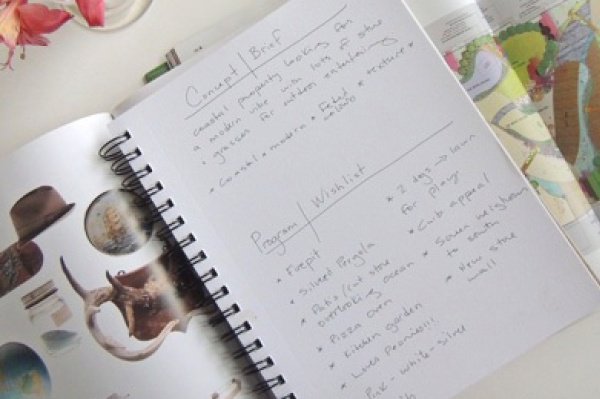 Concept | Brief
coastal property looking for
a modern vibe with lots of stone
+ grasses for outdoor entertaining
* Coastal + modern * Faded * texture *
Program | Wishlist
* Firepit
* Silvered Pergola
* Patio / cut stone
overlooking ocean
* Pizza oven
* Kitchen garden
* Loves Peonies!!!
Pink - white - silver
* 2 dogs → lawn
for play
* Curb appeal
* Screen neighbour
to south
* New stone
wall